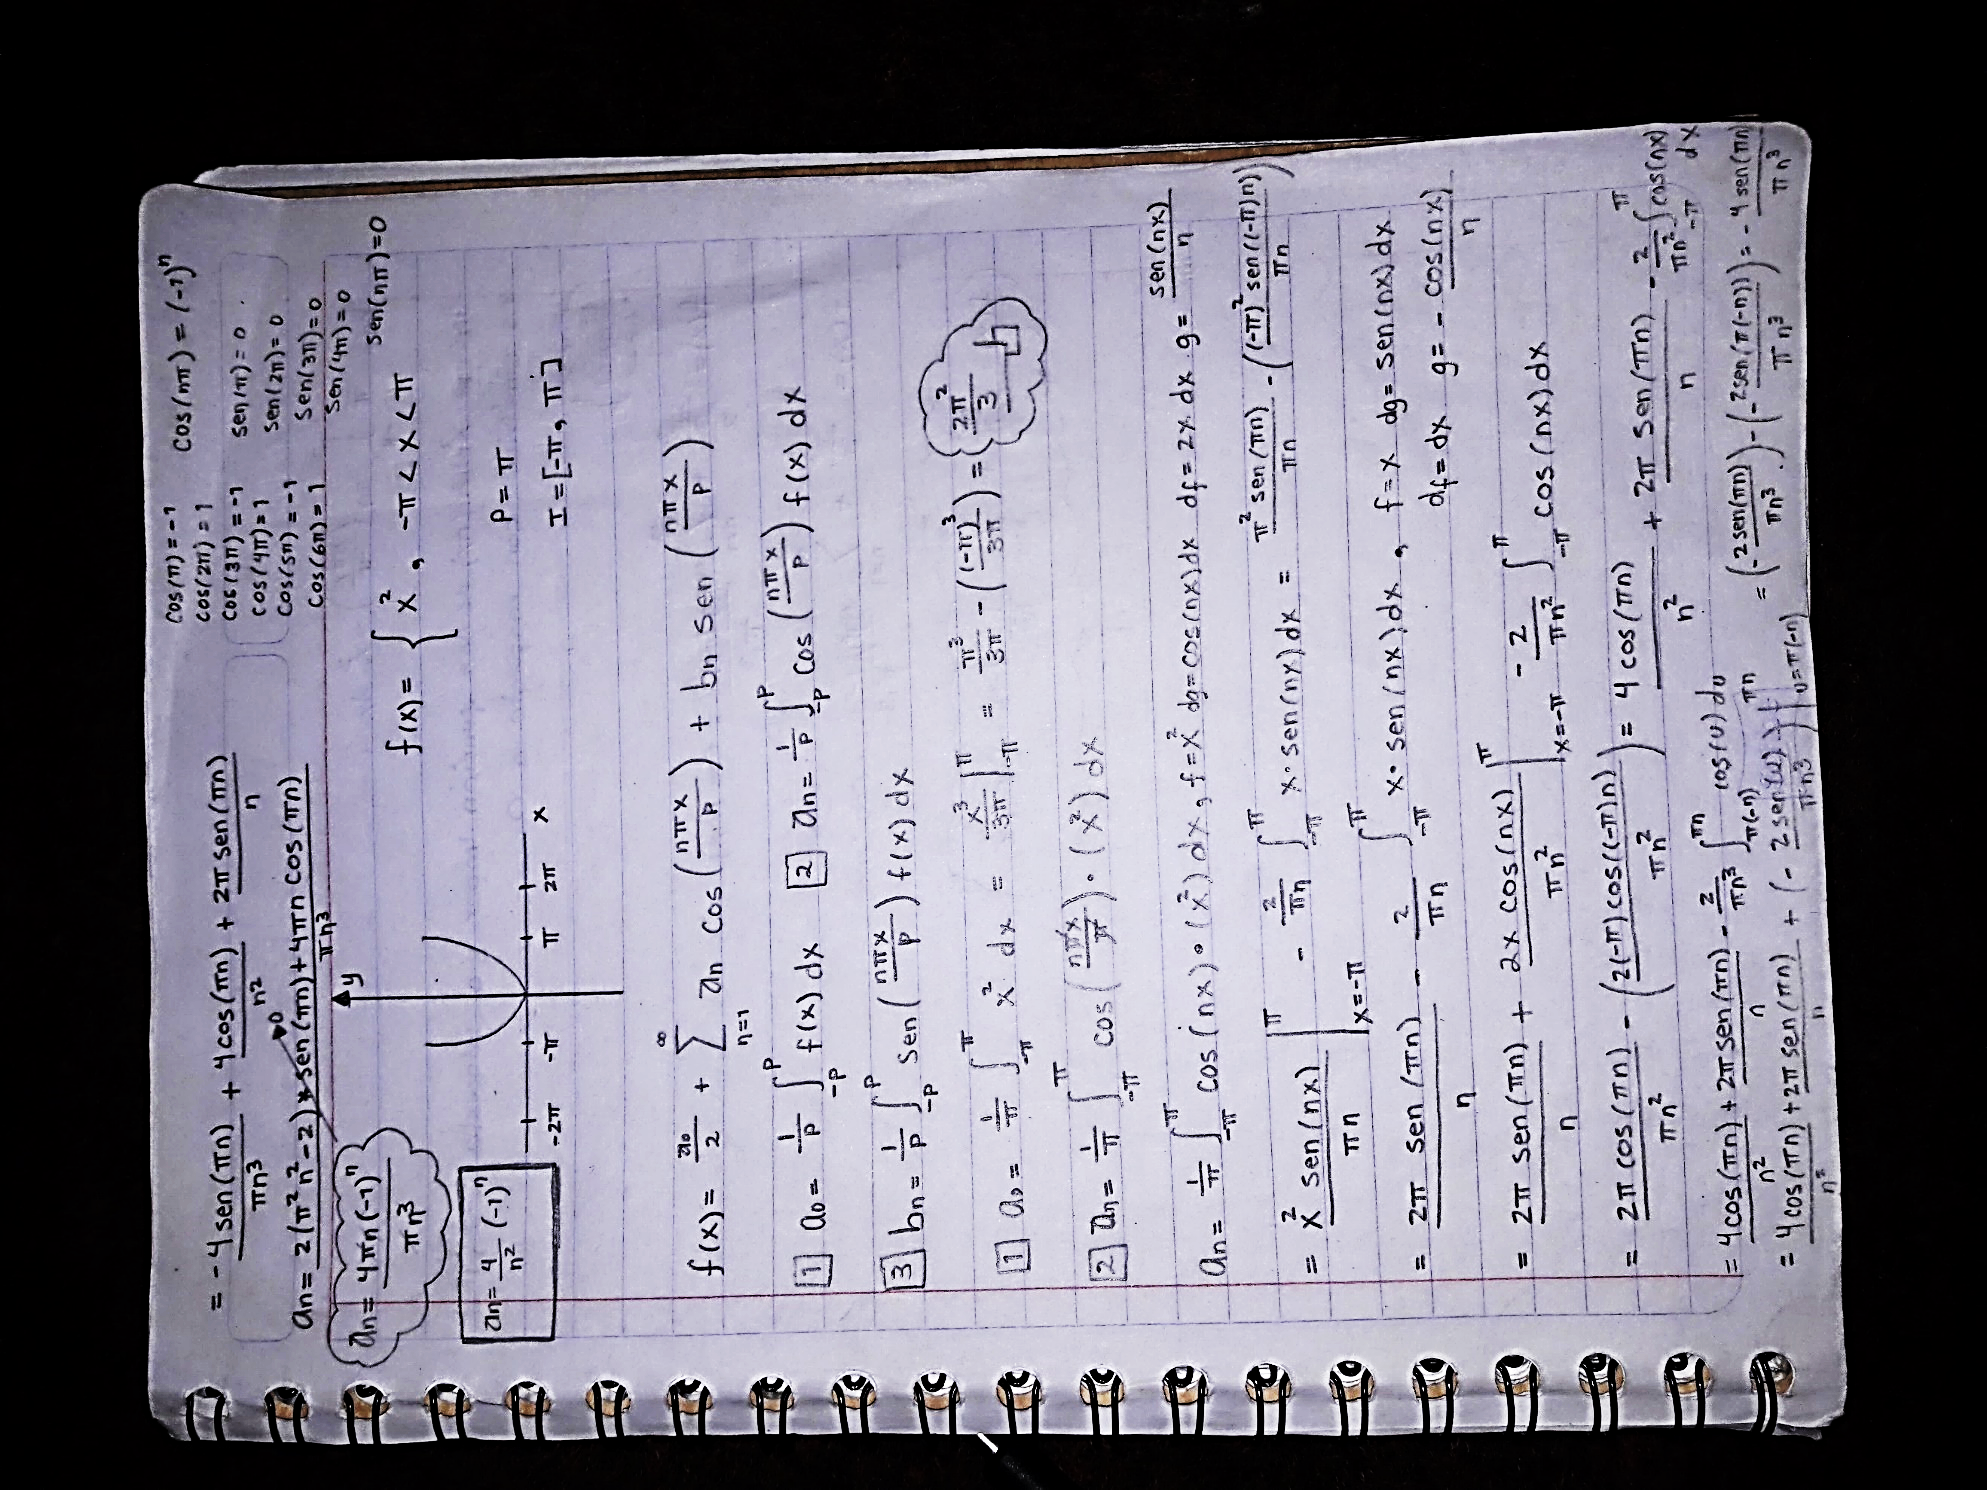 cos(π)=-1
cos(2π)=1
cos(3π)=-1
cos(4π)=1
cos(5π)=-1
cos(6π)=1
cos(nπ) = (-1)^n
sen(π)=0
sen(2π)=0
sen(3π)=0
sen(4π)=0
sen(nπ)=0
= -4sen(πn)/πn³ + 4cos(πn)/n² + 2π sen(πn)/n
an= 2(π²n²-2) * sen(πn) + 4πn cos(πn) / πn³
0
an= 4πn(-1)^n / πn³
an= 4/n² (-1)^n
y
-2π -π π 2π x
f(x)= { x² , -π < x < π
P=π
I=[-π, π]
f(x)= a0/2 + ∑_{n=1}^{∞} an cos(nπx/p) + bn sen(nπx/p)
[1] a0= 1/p ∫_{-p}^{p} f(x) dx [2] an= 1/p ∫_{-p}^{p} cos(nπx/p) f(x) dx
[3] bn= 1/p ∫_{-p}^{p} sen(nπx/p) f(x) dx
[1] a0= 1/π ∫_{-π}^{π} x² dx = x³/3π |_{-π}^{π} = π³/3π - ((-π)³/3π) = 2π²/3
[2] an= 1/π ∫_{-π}^{π} cos(nπx/π)·(x²) dx
an= 1/π ∫_{-π}^{π} cos(nx)·(x²) dx, f=x² dg=cos(nx)dx df=2x dx g= sen(nx)/n
= x² sen(nx)/πn |_{x=-π}^{π} - 2/πn ∫_{-π}^{π} x·sen(nx)dx = π² sen(πn)/πn - ((-π)² sen((-π)n)/πn)
= 2π sen(πn)/n - 2/πn ∫_{-π}^{π} x·sen(nx)dx, f=x dg=sen(nx)dx
df=dx g= -cos(nx)/n
= 2π sen(πn)/n + 2x cos(nx)/πn² |_{x=-π}^{π} - 2/πn² ∫_{-π}^{π} cos(nx)dx
= 2π cos(πn)/πn² - (2(-π)cos((-π)n)/πn²) = 4cos(πn)/n² + 2π sen(πn)/n - 2/πn² ∫_{-π}^{π} cos(nx) dx
= 4cos(πn)/n² + 2π sen(πn)/n - 2/πn³ ∫_{π(-n)}^{πn} cos(u) du
= 4cos(πn)/n² + 2π sen(πn)/n + (- 2sen(u)/πn³) |_{u=π(-n)}^{πn}
= (-2sen(πn)/πn³) - (-2sen(π(-n))/πn³) = -4sen(πn)/πn³